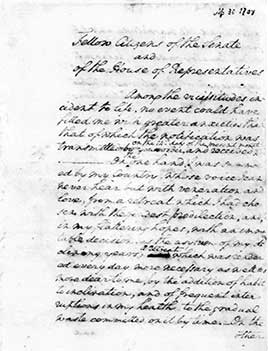 Fellow Citizens of the Senate
and
of the House of Representatives
Among the vicissitudes in-
cident to life, no event could have
filled me with greater anxieties than
that of which the notification was
transmitted by your order, and received
on the 14th day of the present month
On the one hand, I was summon-
ed by my Country, whose voice I can
never hear but with veneration and
love, from a retreat which I had cho-
sen with the fondest predilection, and,
in my flattering hopes, with an immu-
table decision, as the asylum of my
declining years
a retreat which was render-
ed every day more necessary as well as
more dear to me, by the addition of habit
to inclination, and of frequent inter-
ruptions in my health to the gradual
waste committed on it by time. On the
other